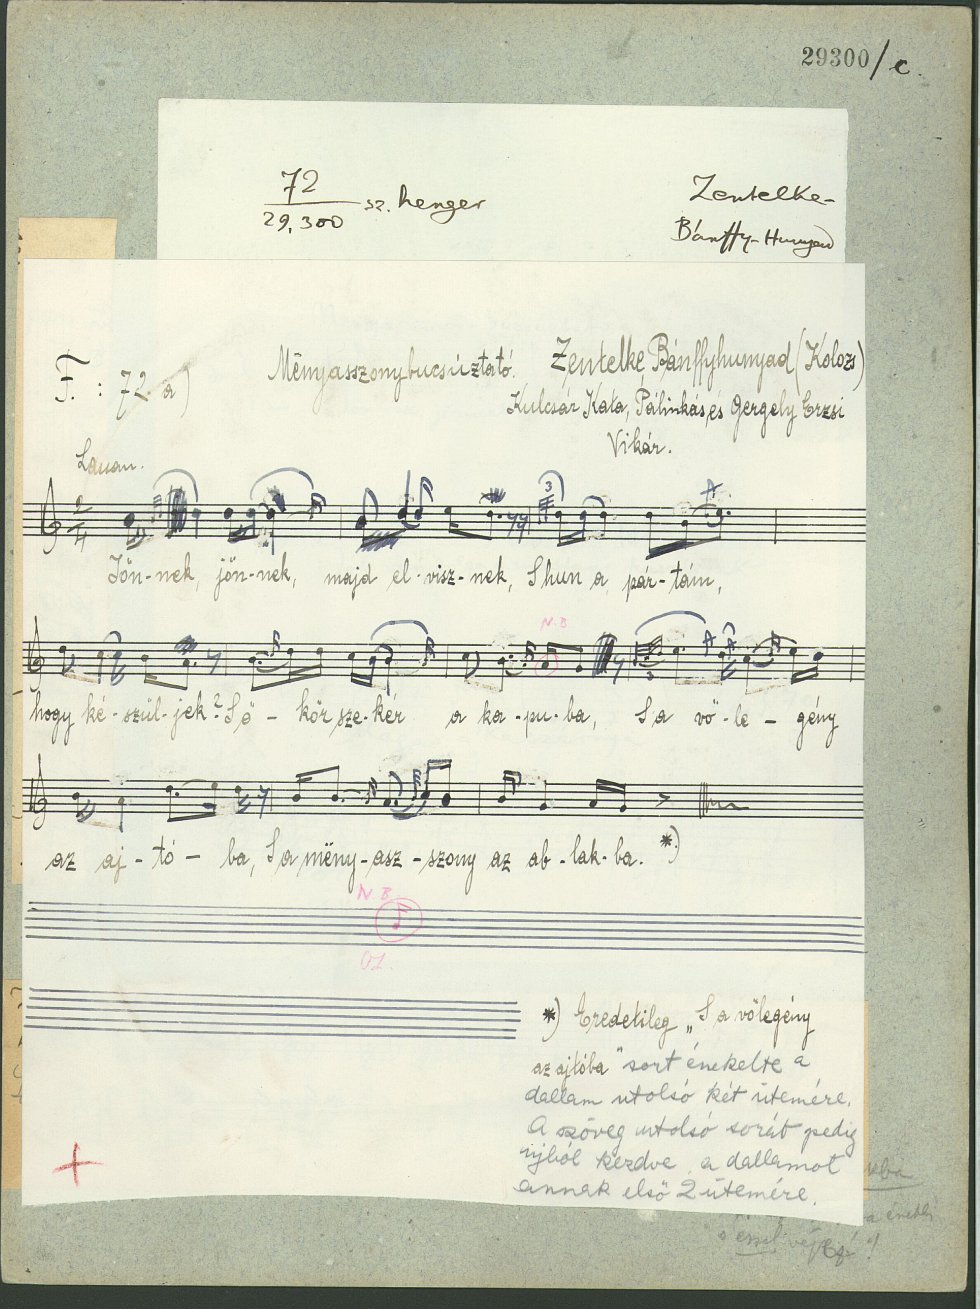 29300/c.
72
29,300 sz. henger
Zentelke-
Bánffy-Hunyad
F. : 72. a)
Mënyasszonybucsúztató.
Zentelke, Bánffyhunyad (Kolozs)
Kulcsár Kata, Pálinkás, és Gergely Erzsi
Vikár.
Lassan.
2
4
3
Jön-nek, jön-nek, majd el-visz-nek, S hun a pár-tám,
N.B
3
hogy ké-szül-jek? S ö - kör sze-kér a ka-pu-ba, S a vö-le-gény
az aj-tó-ba, S a mëny-asz-szony az ab-lak-ba. *)
N.B.
*) Eredetileg „S a völegény
az ajtóba" sort énekelte a
dallam utolsó két ütemére.
A szöveg utolsó sorát pedig
ujból kezdve a dallamot
annak első 2 ütemére.